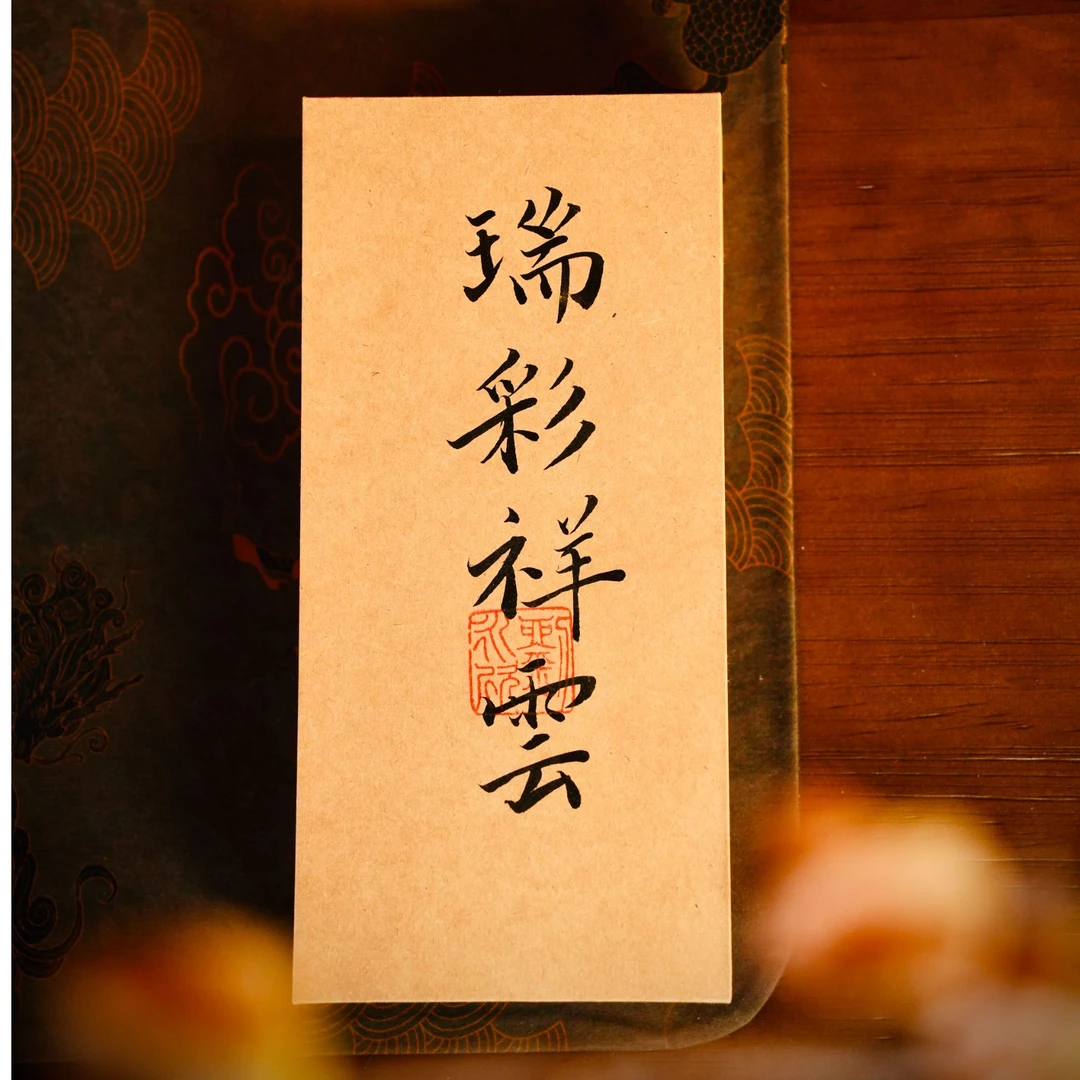 瑞彩祥雲